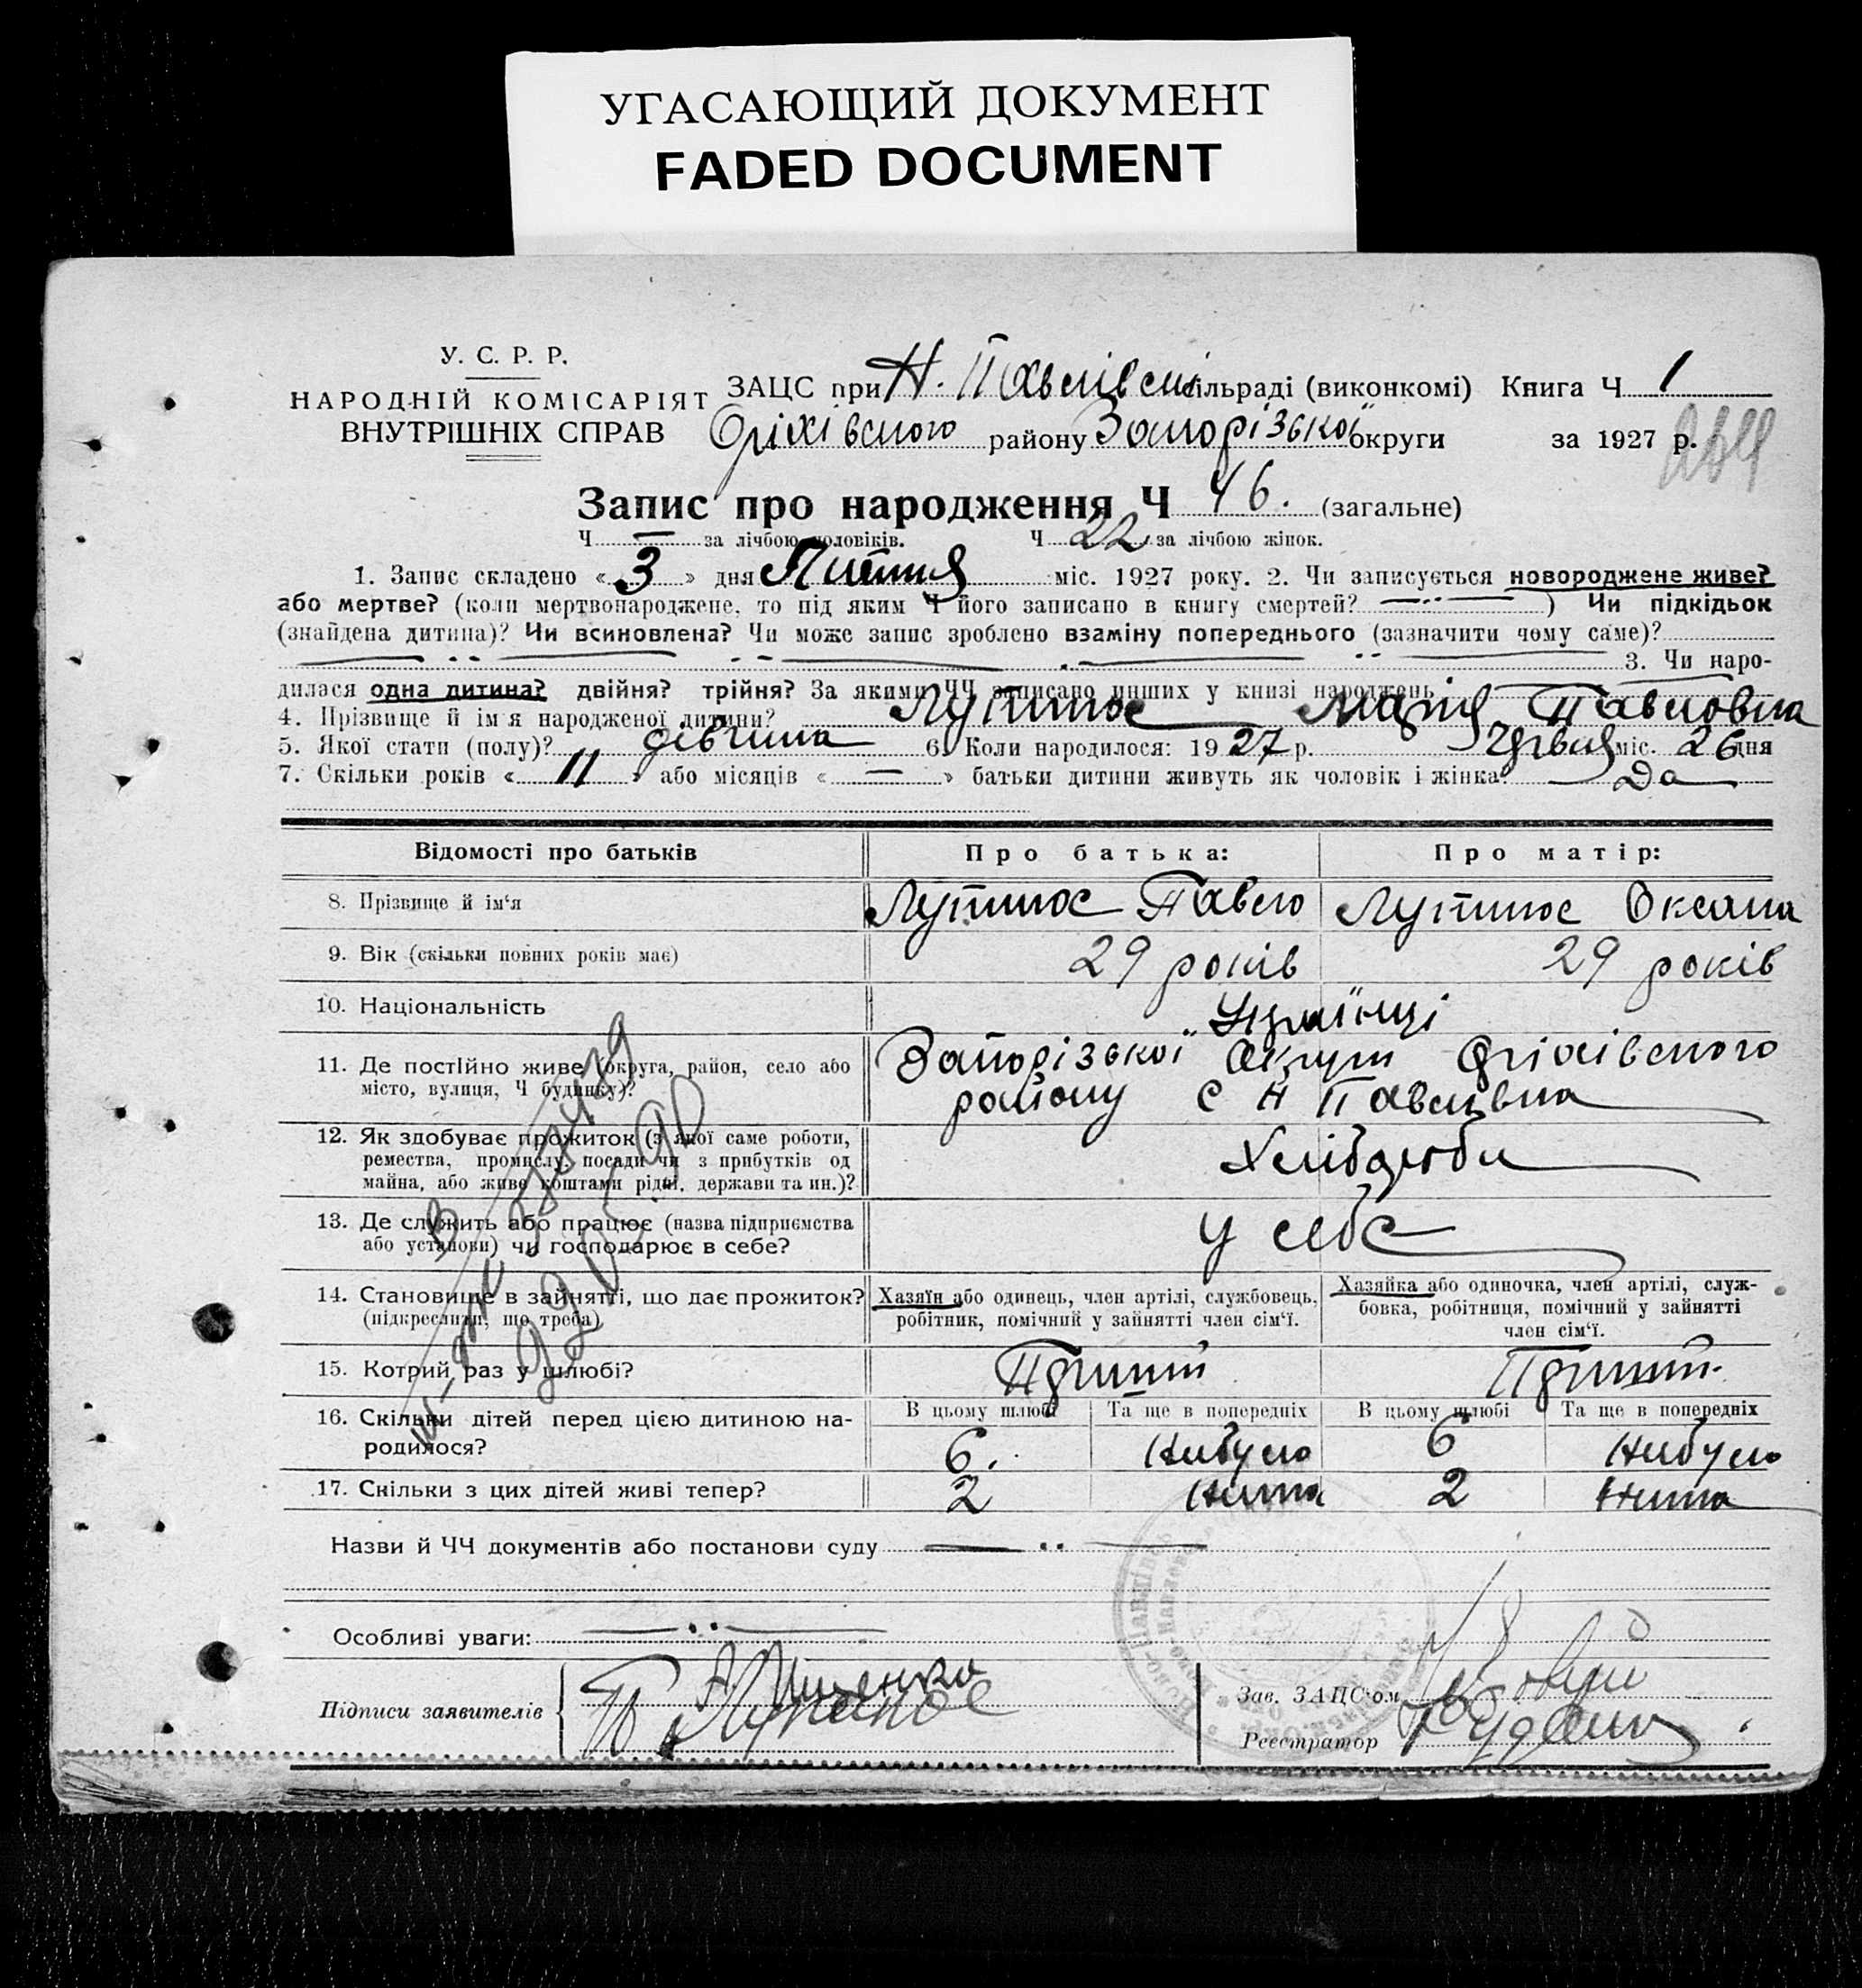 УГАСАЮЩИЙ ДОКУМЕНТ
FADED DOCUMENT
У. С. Р. Р.
НАРОДНІЙ КОМІСАРІЯТ
ВНУТРІШНІХ СПРАВ
ЗАЦС при Н. Павлівські сільраді (виконкомі) Книга Ч 1
Оріхівського району Запорізької округи за 1927 р.
Запис про народження Ч 46. (загальне)
Ч — за лічбою чоловіків. Ч 22 за лічбою жінок.
1. Запис складено « 3 » дня Липня міс. 1927 року. 2. Чи записується новороджене живе?
або мертве? (коли мертвонароджене, то під яким Ч його записано в книгу смертей? ) Чи підкідьок
(знайдена дитина)? Чи всиновлена? Чи може запис зроблено взаміну попереднього (зазначити чому саме)?
3. Чи наро-
дилася одна дитина? двійня? трійня? За якими ЧЧ записано инших у книзі народжень
4. Прізвище й ім'я народженої дитини? Лупинос Марія Павловна
5. Якої стати (полу)? дівчина 6. Коли народилося: 1927 р. Червня міс. 26 дня
7. Скільки років « 11 » або місяців « — » батьки дитини живуть як чоловік і жінка? Да
Відомості про батьків Про батька: Про матір:
8. Прізвище й ім'я Лупинос Павло Лупинос Оксана
9. Вік (скільки повних років має) 29 років 29 років
10. Національність Українці
11. Де постійно живе (округа, район, село або
місто, вулиця, Ч будинку)?
Запорізької Округи Оріхівського
району С Н Павлівка
12. Як здобуває прожиток (з якої саме роботи,
ремества, промислу, посади чи з прибутків од
майна, або живе коштами рідні, держави та ин.)?
Хліборобы
13. Де служить або працює (назва підприємства
або установи) чи господарює в себе?
у себе
14. Становище в зайнятті, що дає прожиток?
(підкреслити, що треба)
Хазяїн або одинець, член артілі, службовець,
робітник, помічний у зайнятті член сім'ї.
Хазяйка або одиночка, член артілі, служ-
бовка, робітниця, помічний у зайнятті
член сім'ї.
15. Котрий раз у шлюбі?
16. Скільки дітей перед цією дитиною на-
родилося?
В цьому шлюбі Та ще в попередніх В цьому шлюбі Та ще в попередніх
6. Небуло 6 Небуло
17. Скільки з цих дітей живі тепер? 2 Нима 2 Нима
Назви й ЧЧ документів або постанови суду
Особливі уваги:
Підписи заявителів
Зав. ЗАЦС'ом
Реєстратор